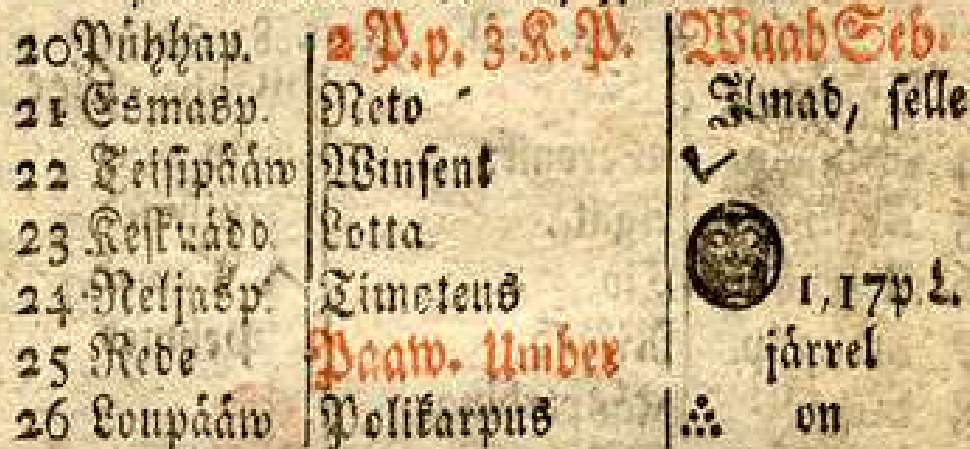 20 Pühhap. 2 P. p. 3 K. P. Waab Seb.
21 Esmasp. Neto Ilmad, selle
22 Teisipääw Winsent
23 Kesknädd. Lotta
24 Neljasp. Timoteus 1, 17 p. L.
25 Rede Paaw. Ümber järrel
26 Loupääw Polikarpus on